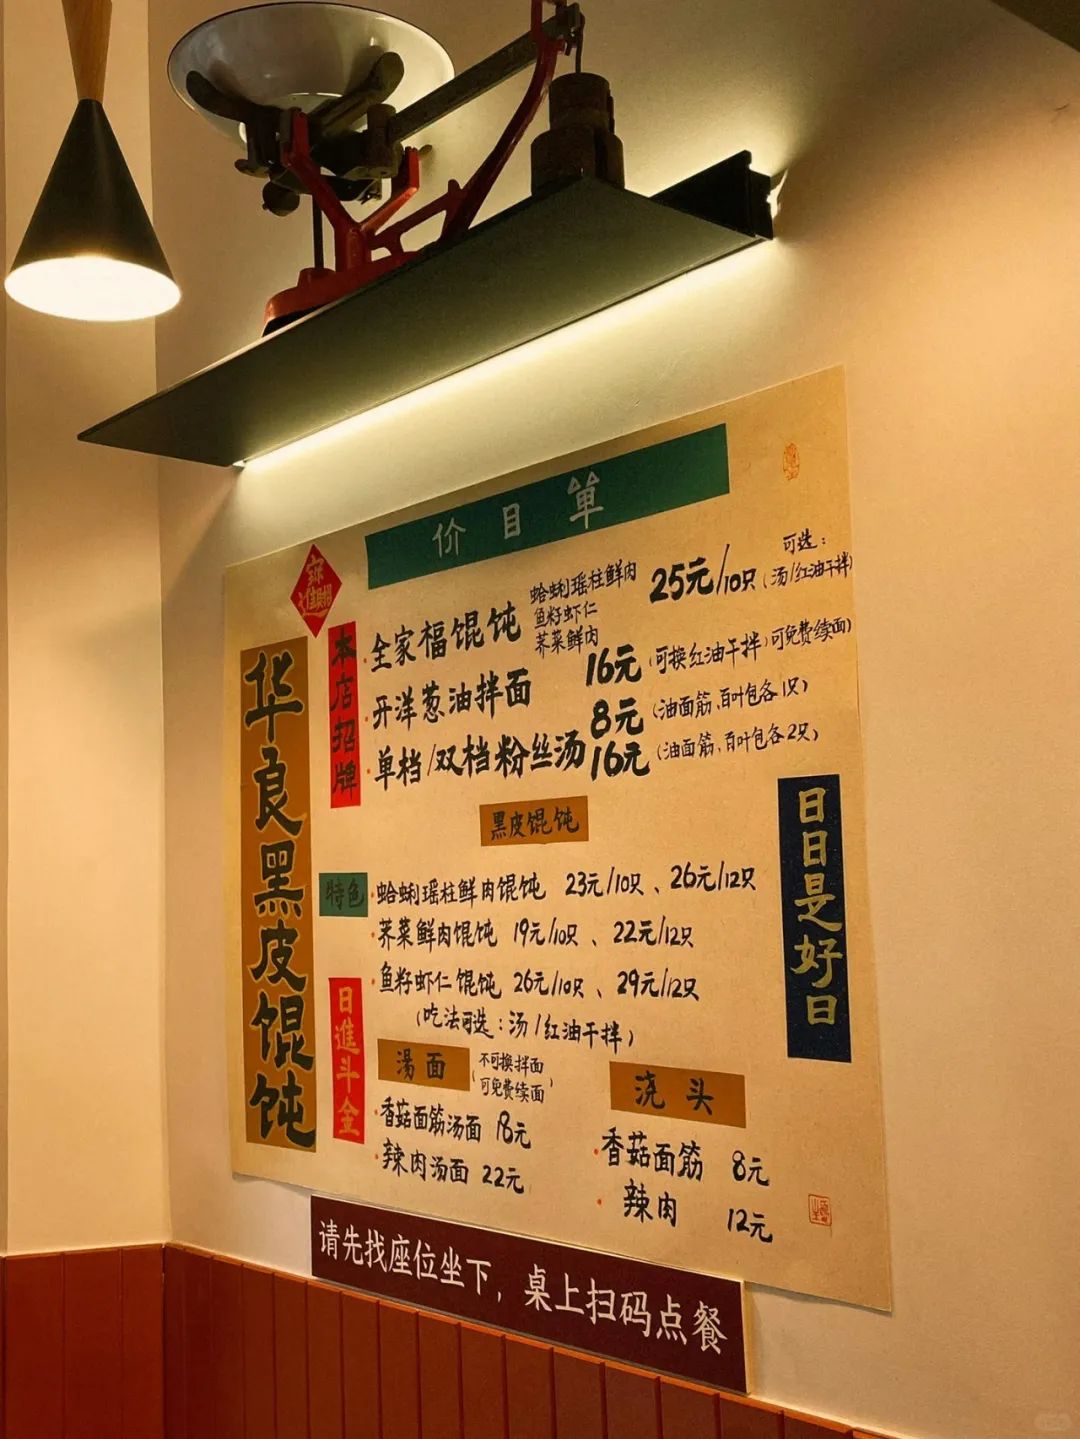 价目单
华良黑皮馄饨
本店招牌
全家福馄饨
蛤蜊瑶柱鲜肉
鱼籽虾仁
荠菜鲜肉
25元/10只
可选：
（汤/红油干拌）
开洋葱油拌面 16元（可换红油干拌）可免费续面）
单档/双档粉丝汤
8元（油面筋、百叶包各1只）
16元（油面筋、百叶包各2只）
黑皮馄饨
特色
蛤蜊瑶柱鲜肉馄饨 23元/10只、26元/12只
荠菜鲜肉馄饨 19元/10只、22元/12只
鱼籽虾仁馄饨 26元/10只、29元/12只
（吃法可选：汤/红油干拌）
日日是好日
日進斗金
湯面
（不可换拌面
可免费续面）
香菇面筋汤面 18元
辣肉汤面 22元
浇头
香菇面筋 8元
辣肉 12元
请先找座位坐下，桌上扫码点餐